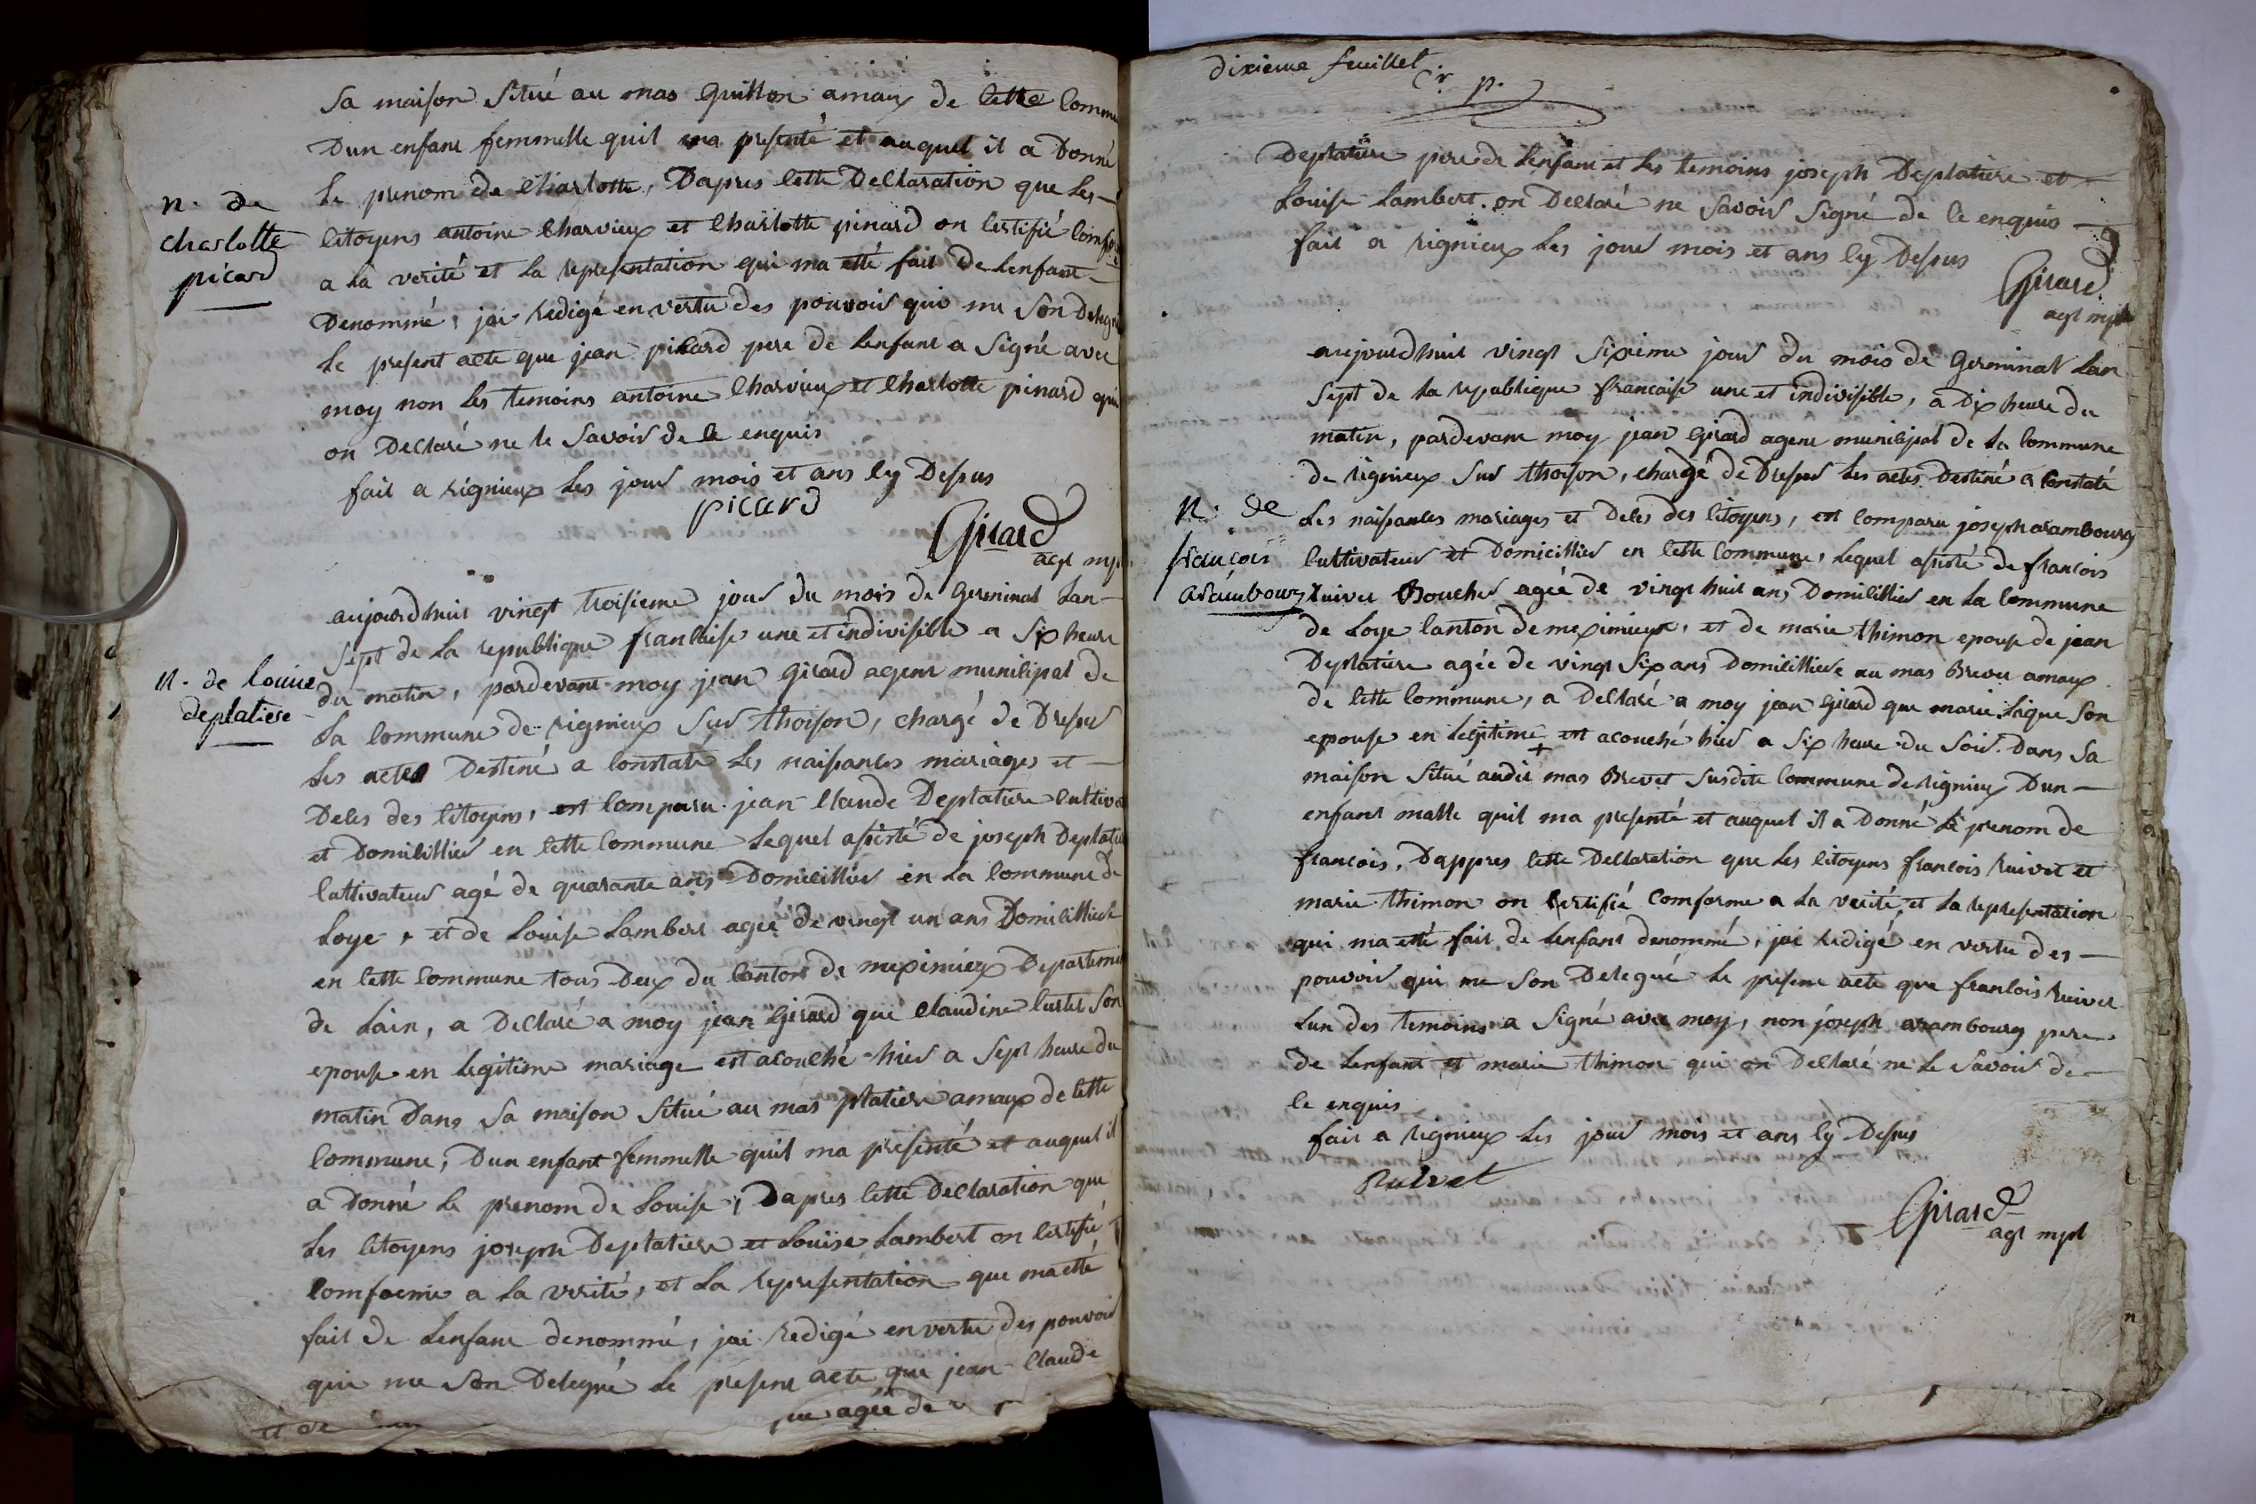 Sa maison Situé au mas Guillon amaux de Cette Commu
Dun enfant femmelle quil ma presenté et auquel il a Donné
Le prenom de Charlotte, Dapres Cette Declaration que Les
n. de
Charlotte
picard
Citoyens antoine Charvieux et Charlotte pinard on Certifié Comfor
a La verité et La representation qui ma etté fait De Lenfant
Denommé, jai Redigé en vertu des pouvoir qui me Son Delegu
Le present acte que jean picard pere de Lenfant a Signé avec
moy non Les temoins antoine Charvieux et Charlotte pinard qui
on Declaré ne le Savoir de Ce enquis
fait a Rignieux Les jour mois et ans Cy Dessus
picard
Girard
agt mpl
aujourdhuit vingt troisieme jour du mois de Germinal Lan
Sept de La republique francaise une et indivisible a Six heure
n. de louise
deplatiere
du matin, pardevant moy jean Girard agent municipal de
La Commune de Rignieux Sur thoison, chargé de Dresser
Les actes Destiné a Constaté Les naissances mariages et
Deces des Citoyens, est Comparu jean Claude Deplatiere Cultiva
et Domicillier en Cette Commune Lequel assisté de joseph Deplatie
Cultivateur agé de quarante ans Domicillier en La Commune de
Loye, et de Louise Lambert ageé de vingt un ans Domicilliere
en Cette Commune tous Deux du Canton de meximieux Departeme
de Lain, a Declaré a moy jean Girard que Claudine Curtet Son
epouse en legitime mariage est acouché hier a Sept heure du
matin Dans Sa maison Situé au mas platiere amaux de Cette
Commune, Dun enfant femmelle quil ma presenté et auquel il
a Donné Le prenom de Louise, Dapres Cette Declaration que
Les Citoyens joseph Deplatiere et Louise Lambert on Certifié
Comforme a La verité, et La representation que ma etté
fait de Lenfant denommé, jai Redigé en vertu des pouvoir
que me Son Delegué Le present acte que jean Claude
agée de
dixieme feuillet
p.
Deplatiere pere de Lenfant et Les temoins joseph Deplatiere et
Louise Lambert on Declaré ne Savoir Signé de Ce enquis
fait a Rignieux Les jour mois et ans Cy Dessus
Girard
agt mpl
aujourdhuit vingt Sixieme jour du mois de Germinal Lan
Sept de La republique francaise une et indivisible, a Dix heure du
matin, pardevant moy jean Girard agent municipal de La Commune
de Rignieux Sur thoison, chargé de Dresser Les actes Destiné a Constaté
n. de
francois
arambourg
Les naissances mariages et Deces des Citoyens, est Comparu joseph arambourg
Cultivateur et Domicillier en Cette Commune, Lequel assisté de francois
Ruivet Boucher ageé de vingt huit ans Domicillier en La Commune
de Loye Canton de meximieux, et de marie thimon epouse de jean
Deplatiere agée de vingt Six ans Domicilliere au mas Brevet amaux
de Cette Commune, a Declaré a moy jean Girard que marie Sique Son
epouse en Legitime + est acouché hier a Six heure du Soir Dans Sa
maison Situé audit mas Brevet Susdite Commune de Rignieux Dun
enfant malle quil ma presenté et auquel il a Donné Le prenom de
francois, Dappres Cette Declaration que Les Citoyens francois Ruivet et
marie thimon on Certifié Comforme a La verité, et La representation
qui ma etté fait de Lenfant denommé, jai Redigé en vertu des
pouvoir qui me Son Delegué Le present acte que francois Ruivet
Lun des temoins a Signé avec moy, non joseph arambourg pere
de Lenfant et marie thimon qui on Declaré ne Le Savoir de
Ce enquis
fait a Rignieux Les jour mois et ans Cy Dessus
Ruivet
Girard
agt mpl